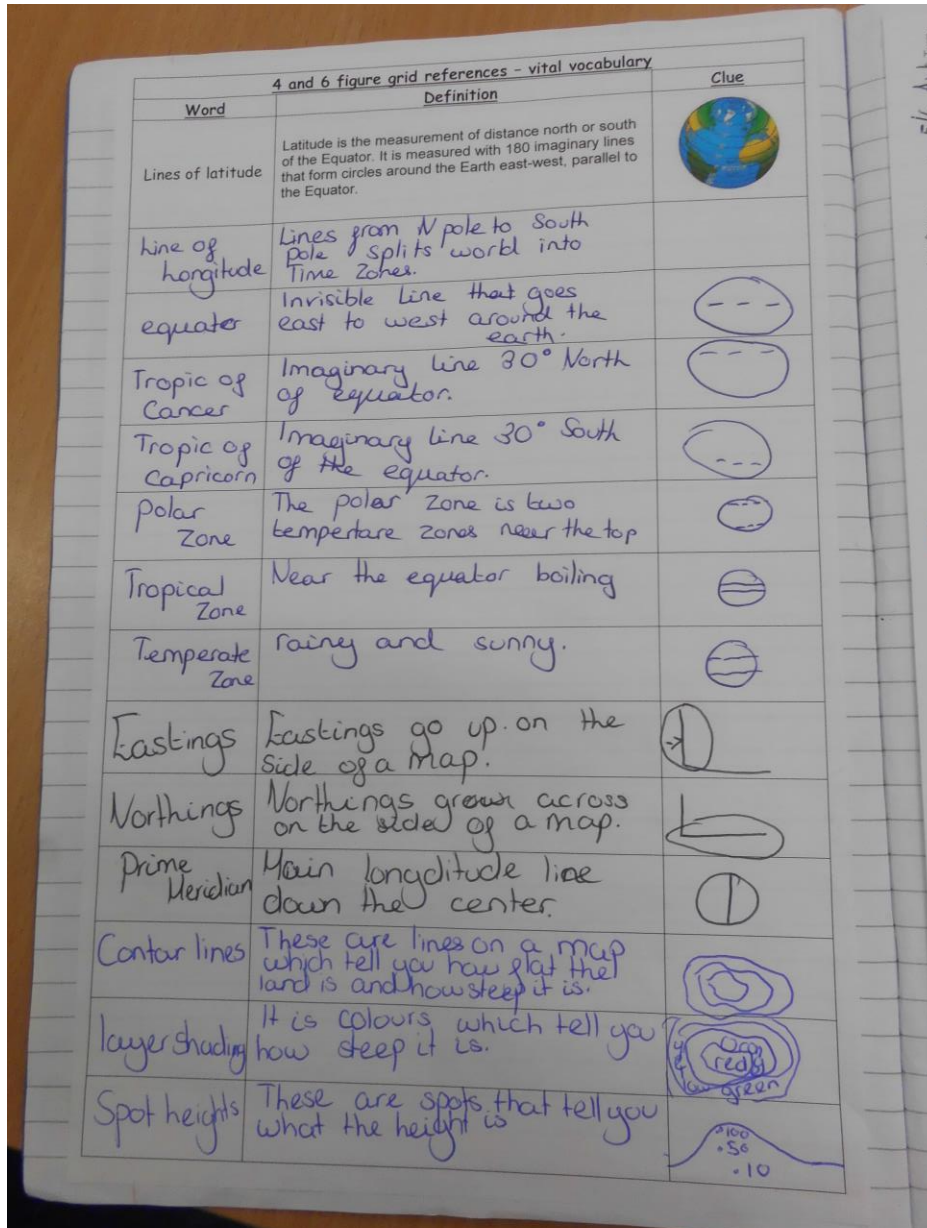 4 and 6 figure grid references - vital vocabulary
Word
Definition
Clue
Lines of latitude
Latitude is the measurement of distance north or south
of the Equator. It is measured with 180 imaginary lines
that form circles around the Earth east-west, parallel to
the Equator.
Line of
Longitude
Lines from N pole to South
pole splits world into
Time Zones.
equater
Invisible Line that goes
east to west around the
earth.
Tropic of
Cancer
Imaginary line 30° North
of equator.
Tropic of
Capricorn
Imaginary line 30° South
of the equator.
Polar
Zone
The polar zone is two
tempertare zones near the top
Tropical
Zone
Near the equator boiling
Temperate
Zone
rainy and sunny.
Eastings
Eastings go up on the
side of a map.
Northings
Northings across
on the side of a map.
Prime
Meridian
Main longditude line
down the center.
Contar lines
These are lines on a map
which tell you how flat the
land is and how steep it is.
layer shading
It is colours which tell you
how steep it is.
red
green
Spot heights
These are spots that tell you
what the height is
100
.50
.10